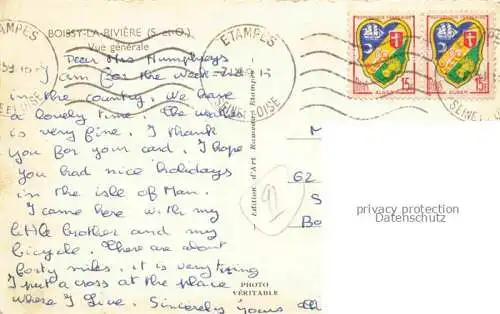 BOISSY-LA-RIVIÈRE (S.-et-O.)
Vue générale
ETAMPES
SEINE ET OISE
ETAMPES
SEINE ET OISE
15F
ALGER
15F
ALGER
Dear Mrs Humphreys
I am for the week-
in the country. We have
a lovely time. The weather
is very fine. I thank
you for your card. I hope
you had nice holidays
in the isle of Man.
I came here with my
little brother and my
bicycle. There are about
forty miles. it is very tiring
I put a cross at the place
where I live. Sincerely yours
Edition d'Art Rameau Etampes
PHOTO
VÉRITABLE
91
M
62
S
Bo
privacy protection
Datenschutz